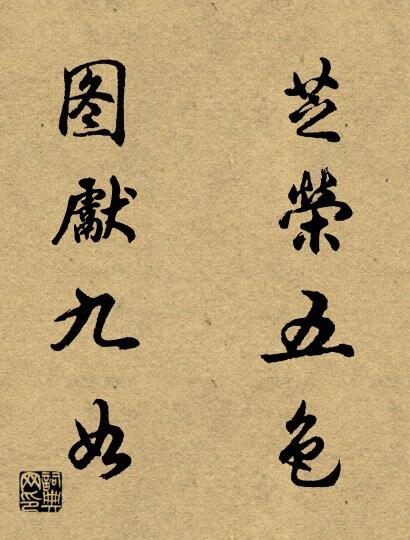 芝榮五色
图獻九如
詞典网印